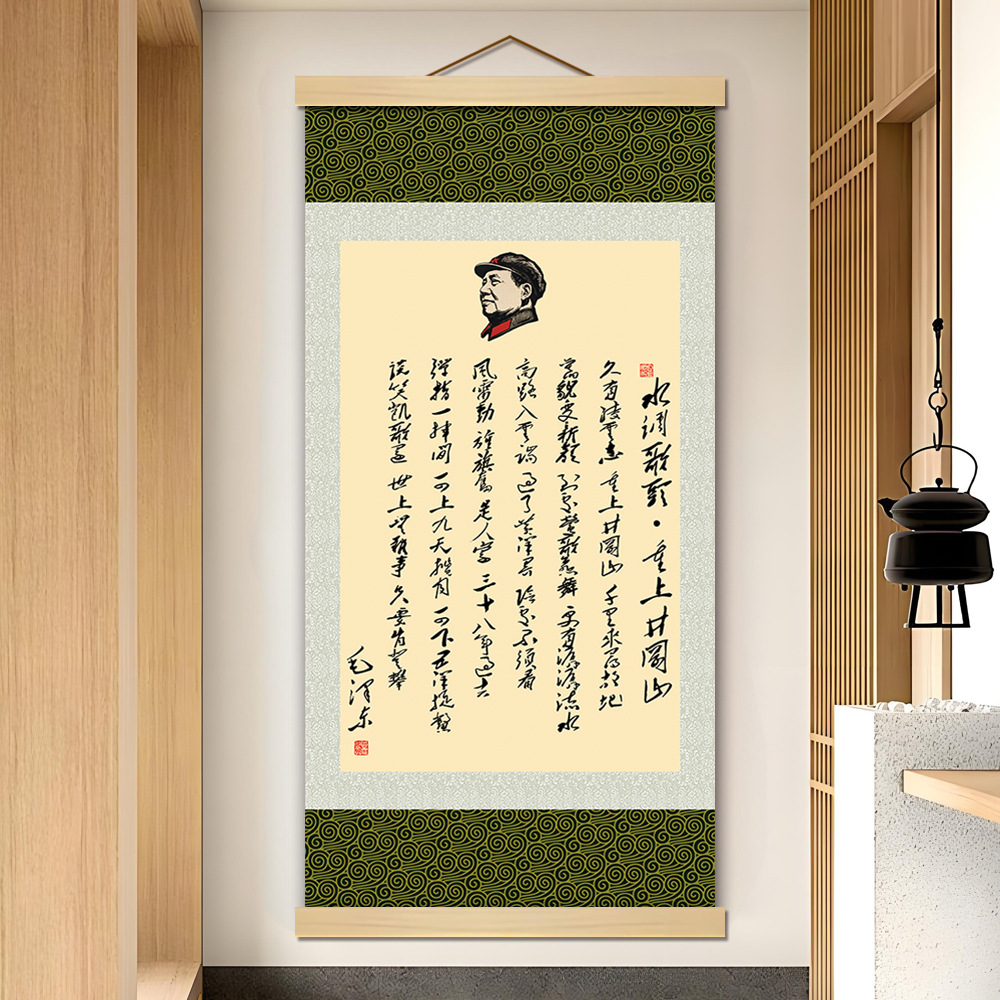 水调歌頭·重上井岡山
久有凌雲志 重上井岡山 千里来寻故地
舊貌变新颜 到处莺歌燕舞 更有潺潺流水
高路入雲端 过了黄洋界 险处不须看
風雷動 旌旗奮 是人寰 三十八年过去
弹指一挥间 可上九天揽月 可下五洋捉鳖
谈笑凯歌还 世上無難事 只要肯登攀
毛泽东